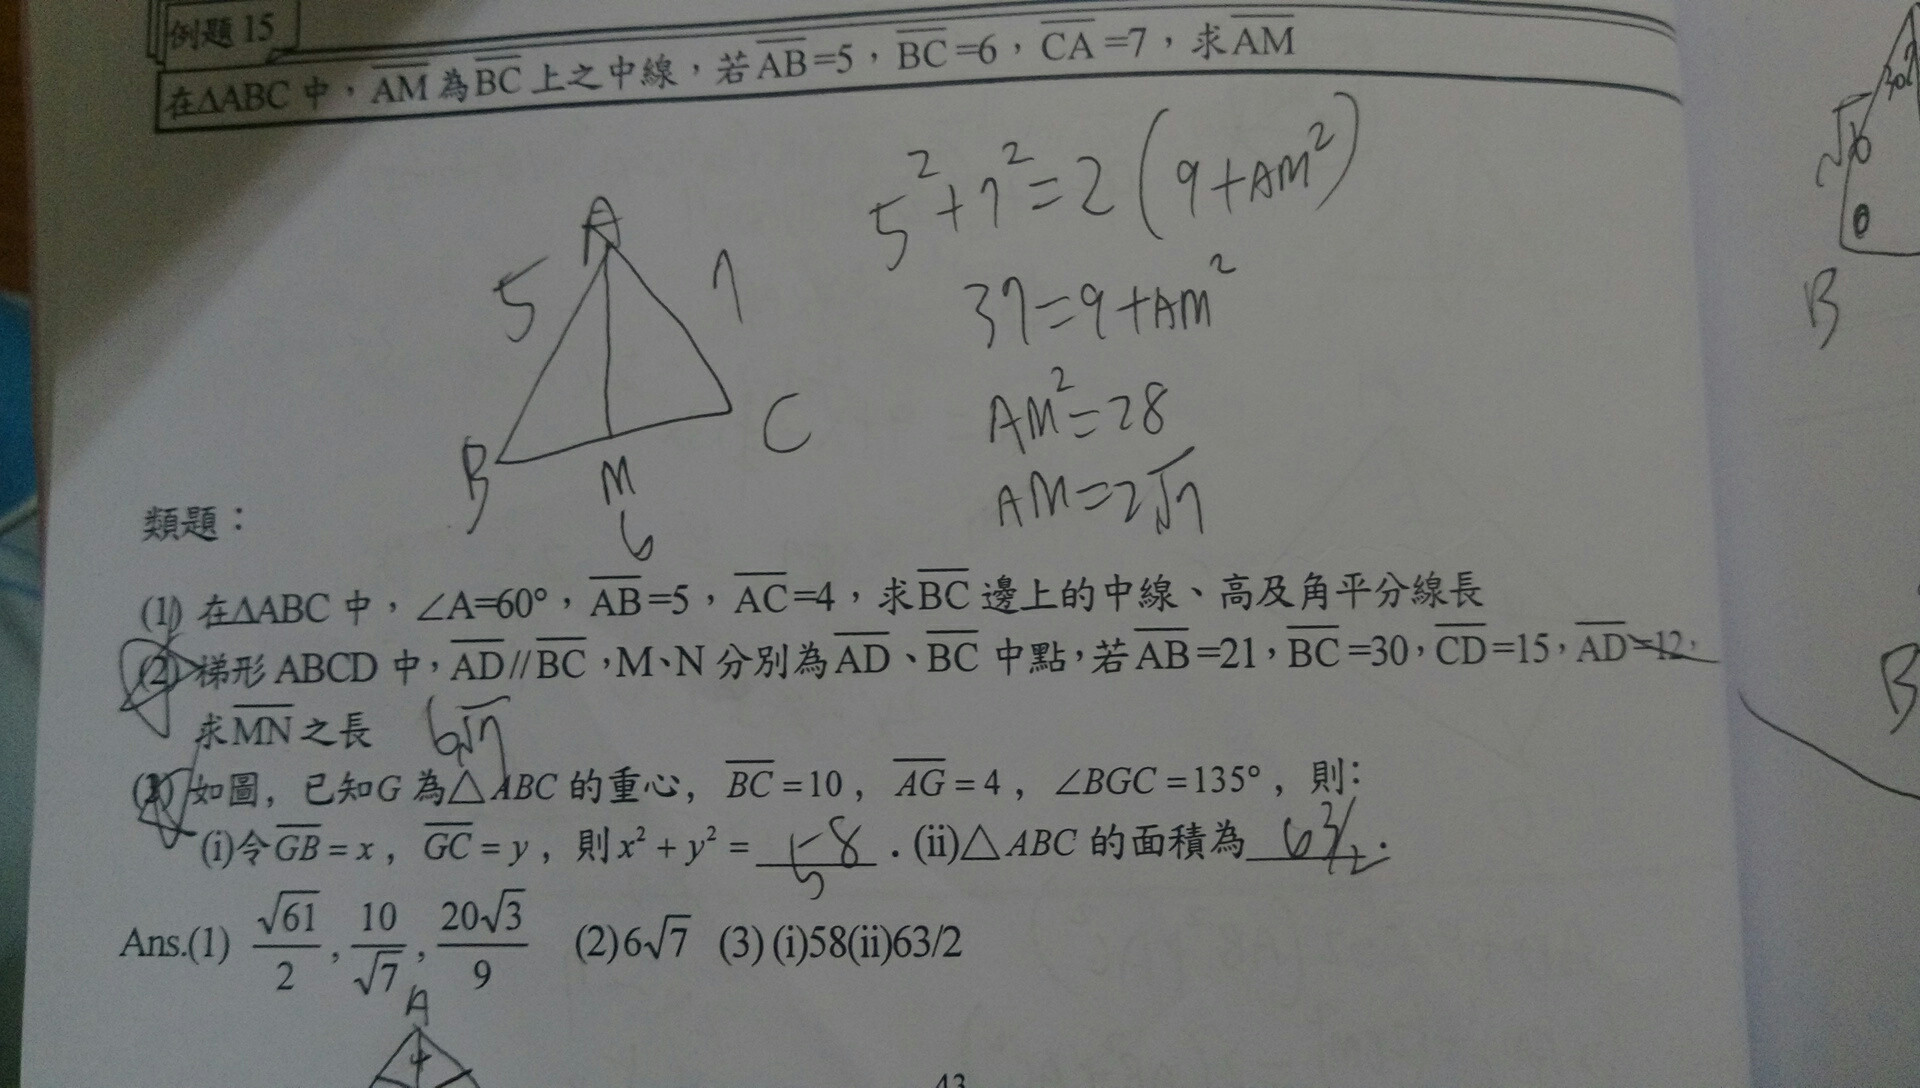 例題 15
在ΔABC 中，AM 為 BC 上之中線，若 AB=5，BC=6，CA=7，求 AM
5²+7²=2(9+AM²)
37=9+AM²
AM²=28
AM=2√7
A
5
7
B
M
C
6
類題：
(1) 在ΔABC 中，∠A=60°，AB=5，AC=4，求 BC 邊上的中線、高及角平分線長
(2) 梯形 ABCD 中，AD//BC，M、N 分別為 AD、BC 中點，若 AB=21，BC=30，CD=15，AD=12，
求 MN 之長 6√7
(3) 如圖，已知 G 為△ABC 的重心，BC=10，AG=4，∠BGC=135°，則：
(i)令 GB=x，GC=y，則 x²+y²= 58 . (ii)△ABC 的面積為 63/2 .
Ans.(1) √61/2 , 10/√7 , 20√3/9 (2)6√7 (3)(i)58(ii)63/2
A
4
43
B
B